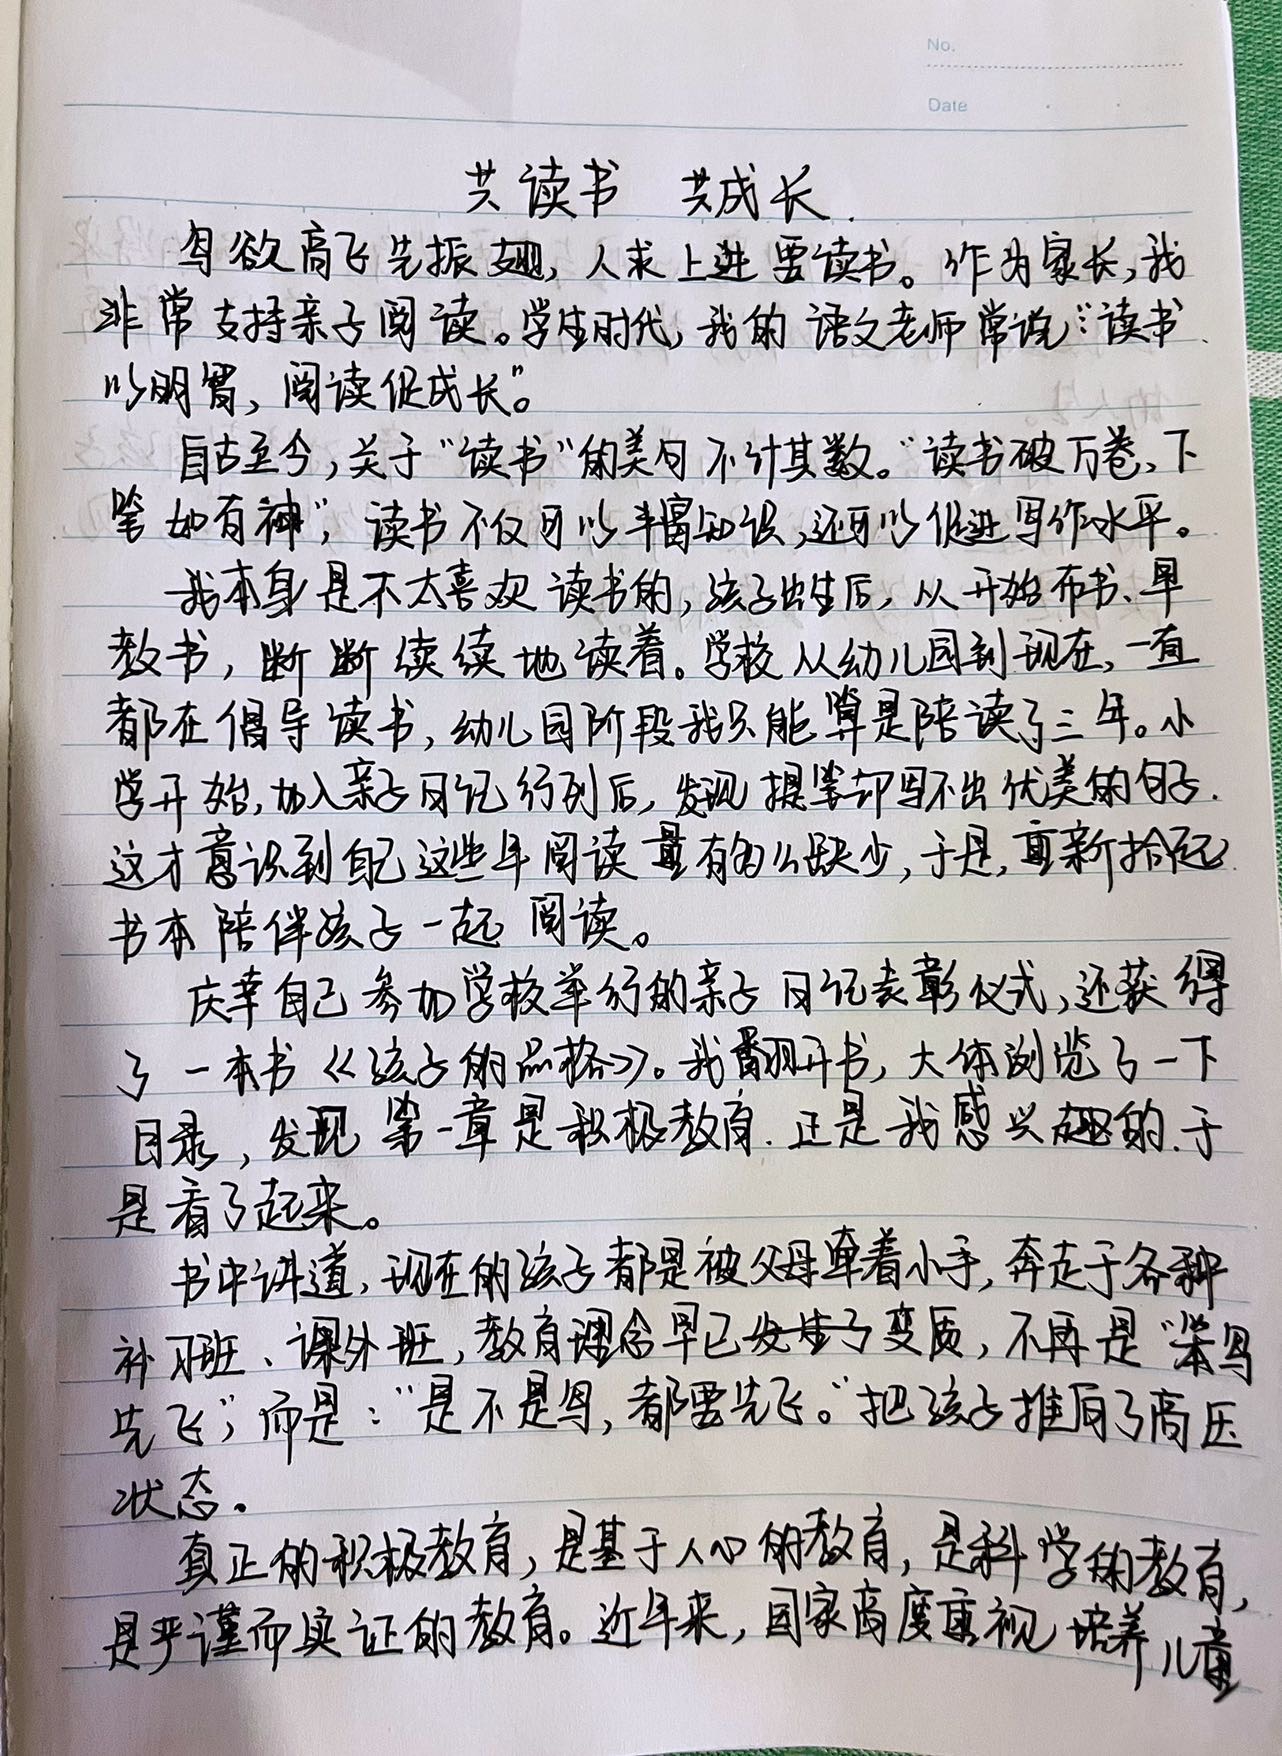 No.
Date
共读书 共成长.
鸟欲高飞先振翅,人求上进要读书。作为家长,我
非常支持亲子阅读。学生时代,我的语文老师常说:"读书
以明智,阅读促成长"。
自古至今,关于"读书"的美句不计其数。"读书破万卷、下
笔如有神",读书不仅可以丰富知识,还可以促进写作水平。
我本身是不太喜欢读书的,孩子出生后,从开始布书、早
教书,断断续续地读着。学校从幼儿园到现在,一直
都在倡导读书,幼儿园阶段我只能算是陪读了三年。小
学开始,加入亲子日记行列后,发现提笔却写不出优美的句子.
这才意识到自己这些年阅读量有多么缺少,于是,重新拾起
书本陪伴孩子一起阅读。
庆幸自己参加学校举行的亲子日记表彰仪式,还获得
了一本书《孩子的品格》。我翻开书,大体浏览了一下
目录,发现第一章是积极教育.正是我感兴趣的.于
是看了起来。
书中讲道,现在的孩子都是被父母牵着小手,奔走于各种
补习班、课外班,教育理念早已发生了变质,不再是"笨鸟
先飞",而是:"是不是鸟,都要先飞。"把孩子推向了高压
状态。
真正的积极教育,是基于人心的教育,是科学的教育,
是严谨而实证的教育。近年来,国家高度重视培养儿童